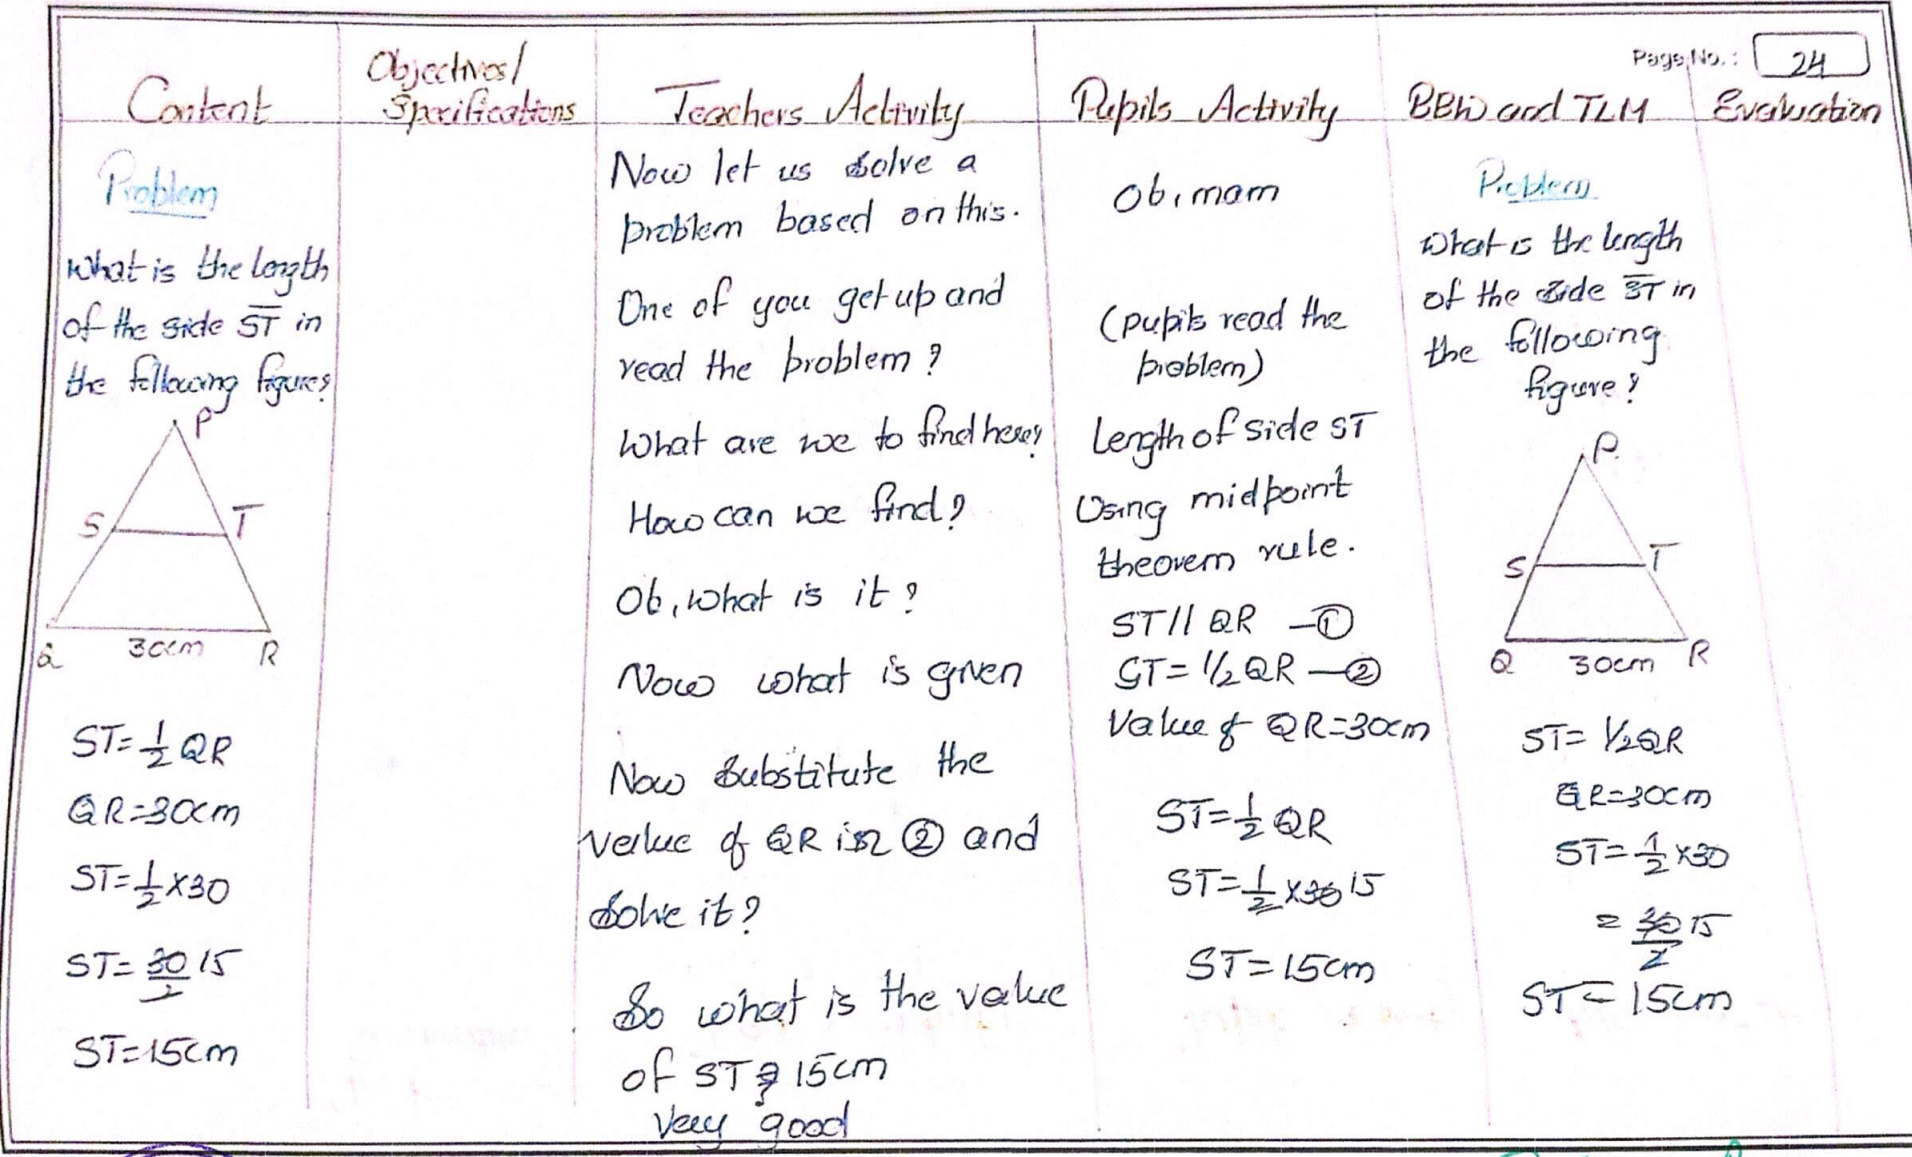 Page No.: 24
Content
Objectives/
Specifications
Teachers Activity
Pupils Activity
BBW and TLM
Evaluation
Problem
What is the length
of the side ST in
the following figure?
P
S
T
Q
30cm
R
ST=1/2 QR
QR=30cm
ST=1/2×30
ST=30/2 15
ST=15cm
Now let us solve a
problem based on this.
One of you get up and
read the problem?
What are we to find here?
How can we find?
Ok, what is it?
Now what is given
Now substitute the
value of QR in ② and
solve it?
So what is the value
of ST? 15cm
Very good
Ok, mam
(pupils read the
problem)
Length of side ST
Using midpoint
theorem rule.
ST// QR —①
ST= 1/2 QR —②
Value of QR=30cm
ST=1/2 QR
ST=1/2 ×30 15
ST=15cm
Problem
What is the length
of the side ST in
the following
figure?
P
S
T
Q
30cm
R
ST= 1/2QR
QR=30cm
ST=1/2 ×30
= 30/2 15
ST= 15cm